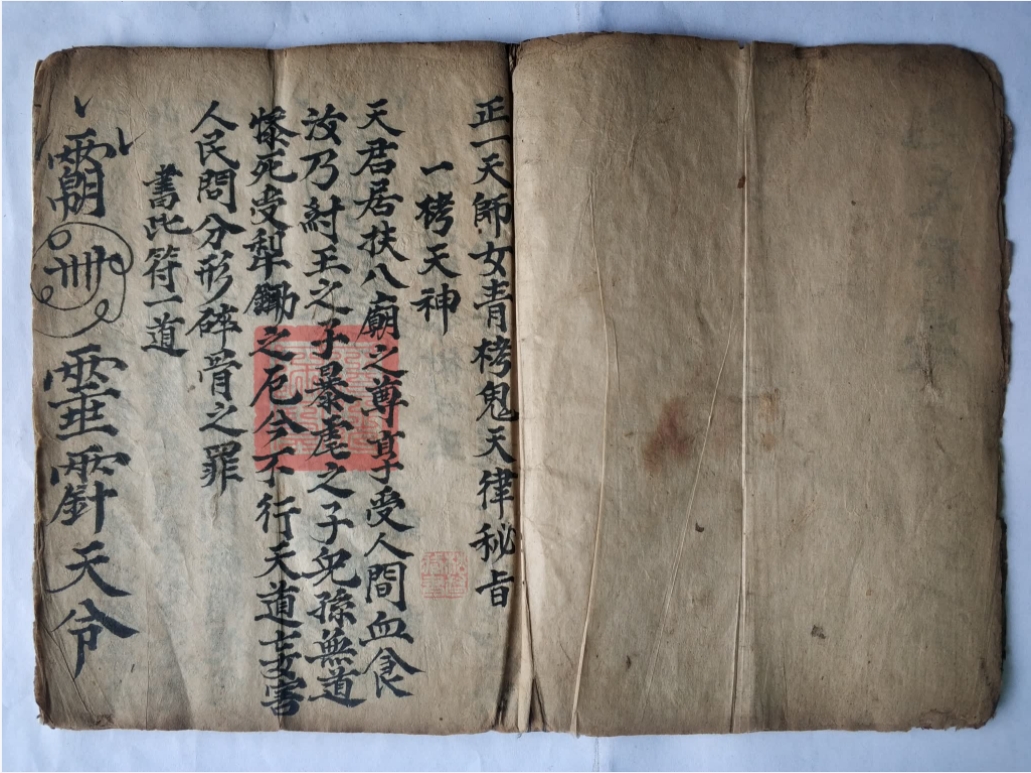 正一天師女青栲鬼天律秘旨
一栲天神
天君居扶八廟之尊享受人間血食
汝乃紂王之子暴虐之子兒孫無道
慘死受犁鋤之厄今不行天道妄害
人民問分形碎骨之罪
書此符一道
天令